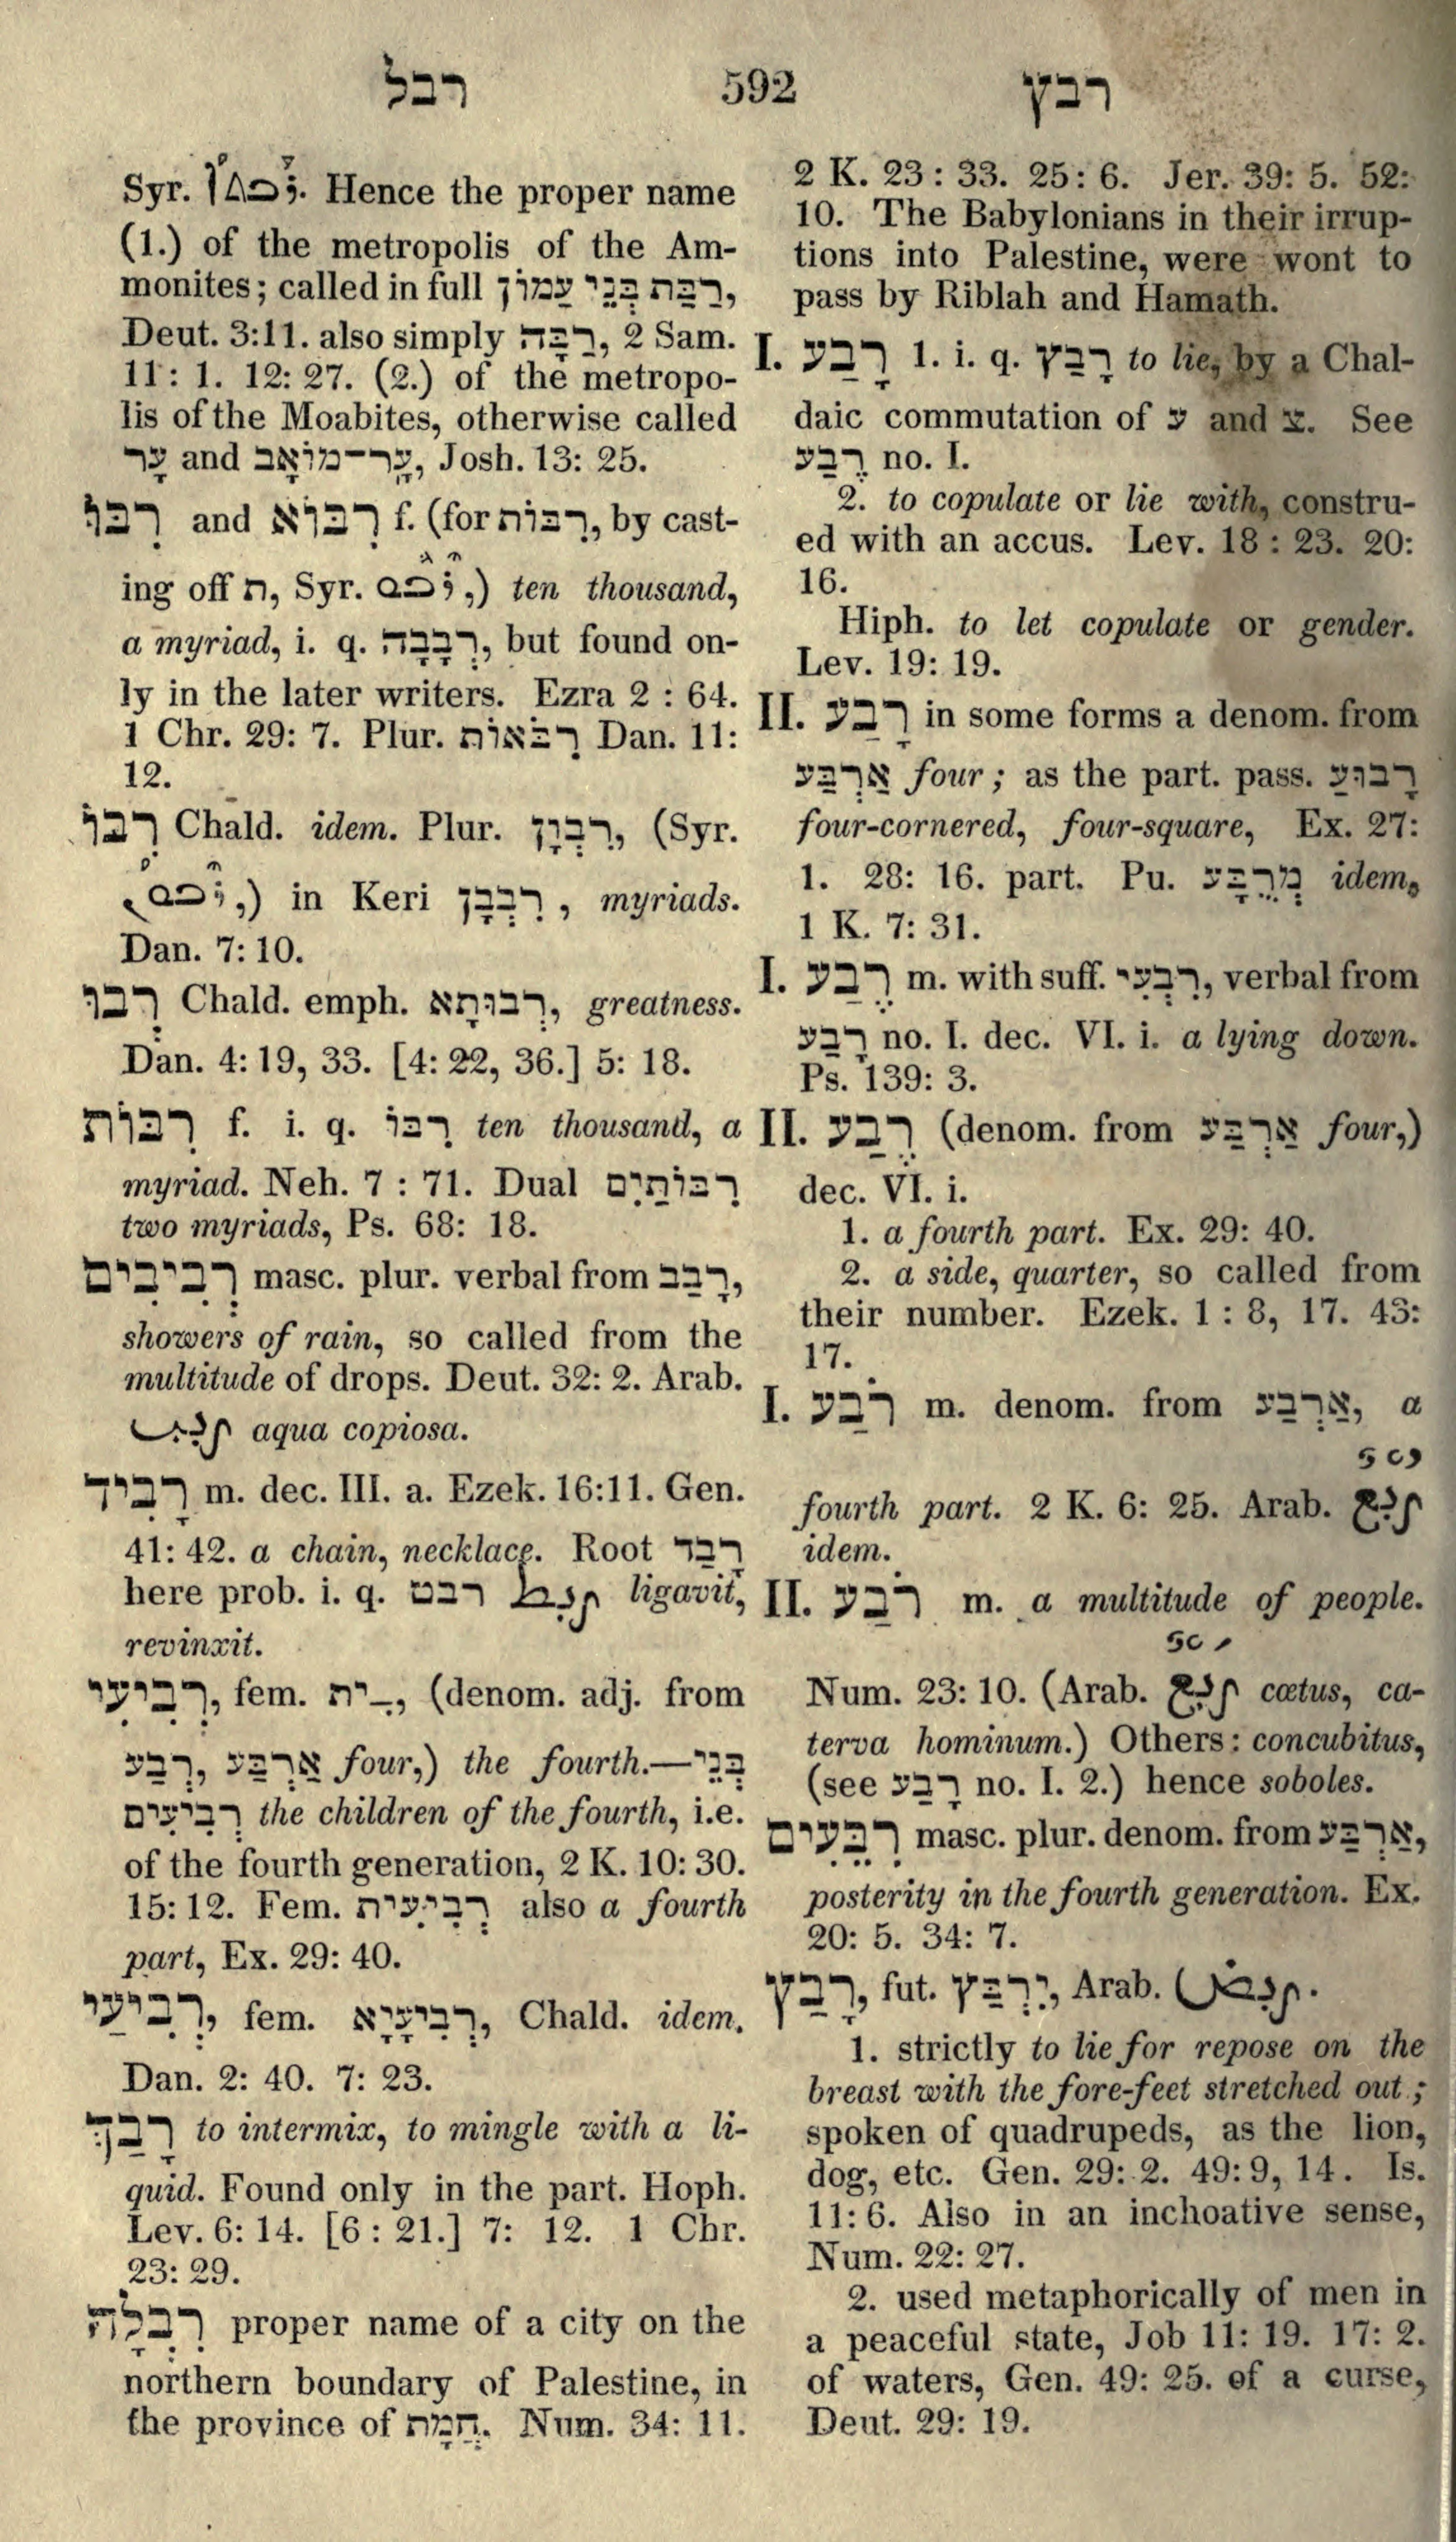 רבל 592 רבץ
Syr. Hence the proper name
(1.) of the metropolis of the Am-
monites; called in full רַבַּת בְּנֵי עַמּוֹן,
Deut. 3:11. also simply רַבָּה, 2 Sam.
11: 1. 12: 27. (2.) of the metropo-
lis of the Moabites, otherwise called
עָר and עָר־מוֹאָב, Josh. 13: 25.
רִבּוֹ and רִבּוֹא f. (for רִבּוֹת, by cast-
ing off ת, Syr. ,) ten thousand,
a myriad, i. q. רְבָבָה, but found on-
ly in the later writers. Ezra 2 : 64.
1 Chr. 29: 7. Plur. רִבֹּאוֹת Dan. 11:
12.
רִבּוֹ Chald. idem. Plur. רִבְּוָן, (Syr.
,) in Keri רִבְבָן, myriads.
Dan. 7: 10.
רְבוּ Chald. emph. רְבוּתָא, greatness.
Dan. 4: 19, 33. [4: 22, 36.] 5: 18.
רִבּוֹת f. i. q. רִבּוֹ ten thousand, a
myriad. Neh. 7 : 71. Dual רִבּוֹתַיִם
two myriads, Ps. 68: 18.
רְבִיבִים masc. plur. verbal from רָבַב,
showers of rain, so called from the
multitude of drops. Deut. 32: 2. Arab.
aqua copiosa.
רָבִיד m. dec. III. a. Ezek. 16:11. Gen.
41: 42. a chain, necklace. Root רָבַד
here prob. i. q. רבט ربط ligavit,
revinxit.
רְבִיעִי, fem. ־ִית, (denom. adj. from
רְבַע, אַרְבַּע four,) the fourth.—בְּנֵי
רְבִיעִים the children of the fourth, i.e.
of the fourth generation, 2 K. 10: 30.
15: 12. Fem. רְבִיעִית also a fourth
part, Ex. 29: 40.
רְבִיעַי, fem. רְבִיעָיָא, Chald. idem.
Dan. 2: 40. 7: 23.
רָבַךְ to intermix, to mingle with a li-
quid. Found only in the part. Hoph.
Lev. 6: 14. [6 : 21.] 7: 12. 1 Chr.
23: 29.
רִבְלָה proper name of a city on the
northern boundary of Palestine, in
the province of חֲמָת. Num. 34: 11.
2 K. 23 : 33. 25: 6. Jer. 39: 5. 52:
10. The Babylonians in their irrup-
tions into Palestine, were wont to
pass by Riblah and Hamath.
I. רָבַע 1. i. q. רָבַץ to lie, by a Chal-
daic commutation of ע and צ. See
רֶבַע no. I.
2. to copulate or lie with, constru-
ed with an accus. Lev. 18 : 23. 20:
16.
Hiph. to let copulate or gender.
Lev. 19: 19.
II. רָבַע in some forms a denom. from
אַרְבַּע four; as the part. pass. רָבוּעַ
four-cornered, four-square, Ex. 27:
1. 28: 16. part. Pu. מְרֻבָּע idem,
1 K. 7: 31.
I. רֶבַע m. with suff. רִבְעִי, verbal from
רָבַע no. I. dec. VI. i. a lying down.
Ps. 139: 3.
II. רֶבַע (denom. from אַרְבַּע four,)
dec. VI. i.
1. a fourth part. Ex. 29: 40.
2. a side, quarter, so called from
their number. Ezek. 1 : 8, 17. 43:
17.
I. רֹבַע m. denom. from אַרְבַּע, a
fourth part. 2 K. 6: 25. Arab. رُبْعٌ
idem.
II. רֹבַע m. a multitude of people.
Num. 23: 10. (Arab. رَبْعٌ cœtus, ca-
terva hominum.) Others: concubitus,
(see רָבַע no. I. 2.) hence soboles.
רִבֵּעִים masc. plur. denom. from אַרְבַּע,
posterity in the fourth generation. Ex.
20: 5. 34: 7.
רָבַץ, fut. יִרְבַּץ, Arab. ربض.
1. strictly to lie for repose on the
breast with the fore-feet stretched out;
spoken of quadrupeds, as the lion,
dog, etc. Gen. 29: 2. 49: 9, 14. Is.
11: 6. Also in an inchoative sense,
Num. 22: 27.
2. used metaphorically of men in
a peaceful state, Job 11: 19. 17: 2.
of waters, Gen. 49: 25. of a curse,
Deut. 29: 19.